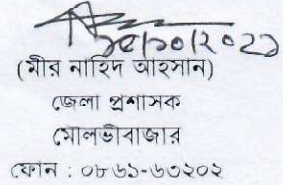 ১৫/১০/২০২১
(মীর নাহিদ আহসান)
জেলা প্রশাসক
মৌলভীবাজার
ফোন : ০৮৬১-৬৩২০২